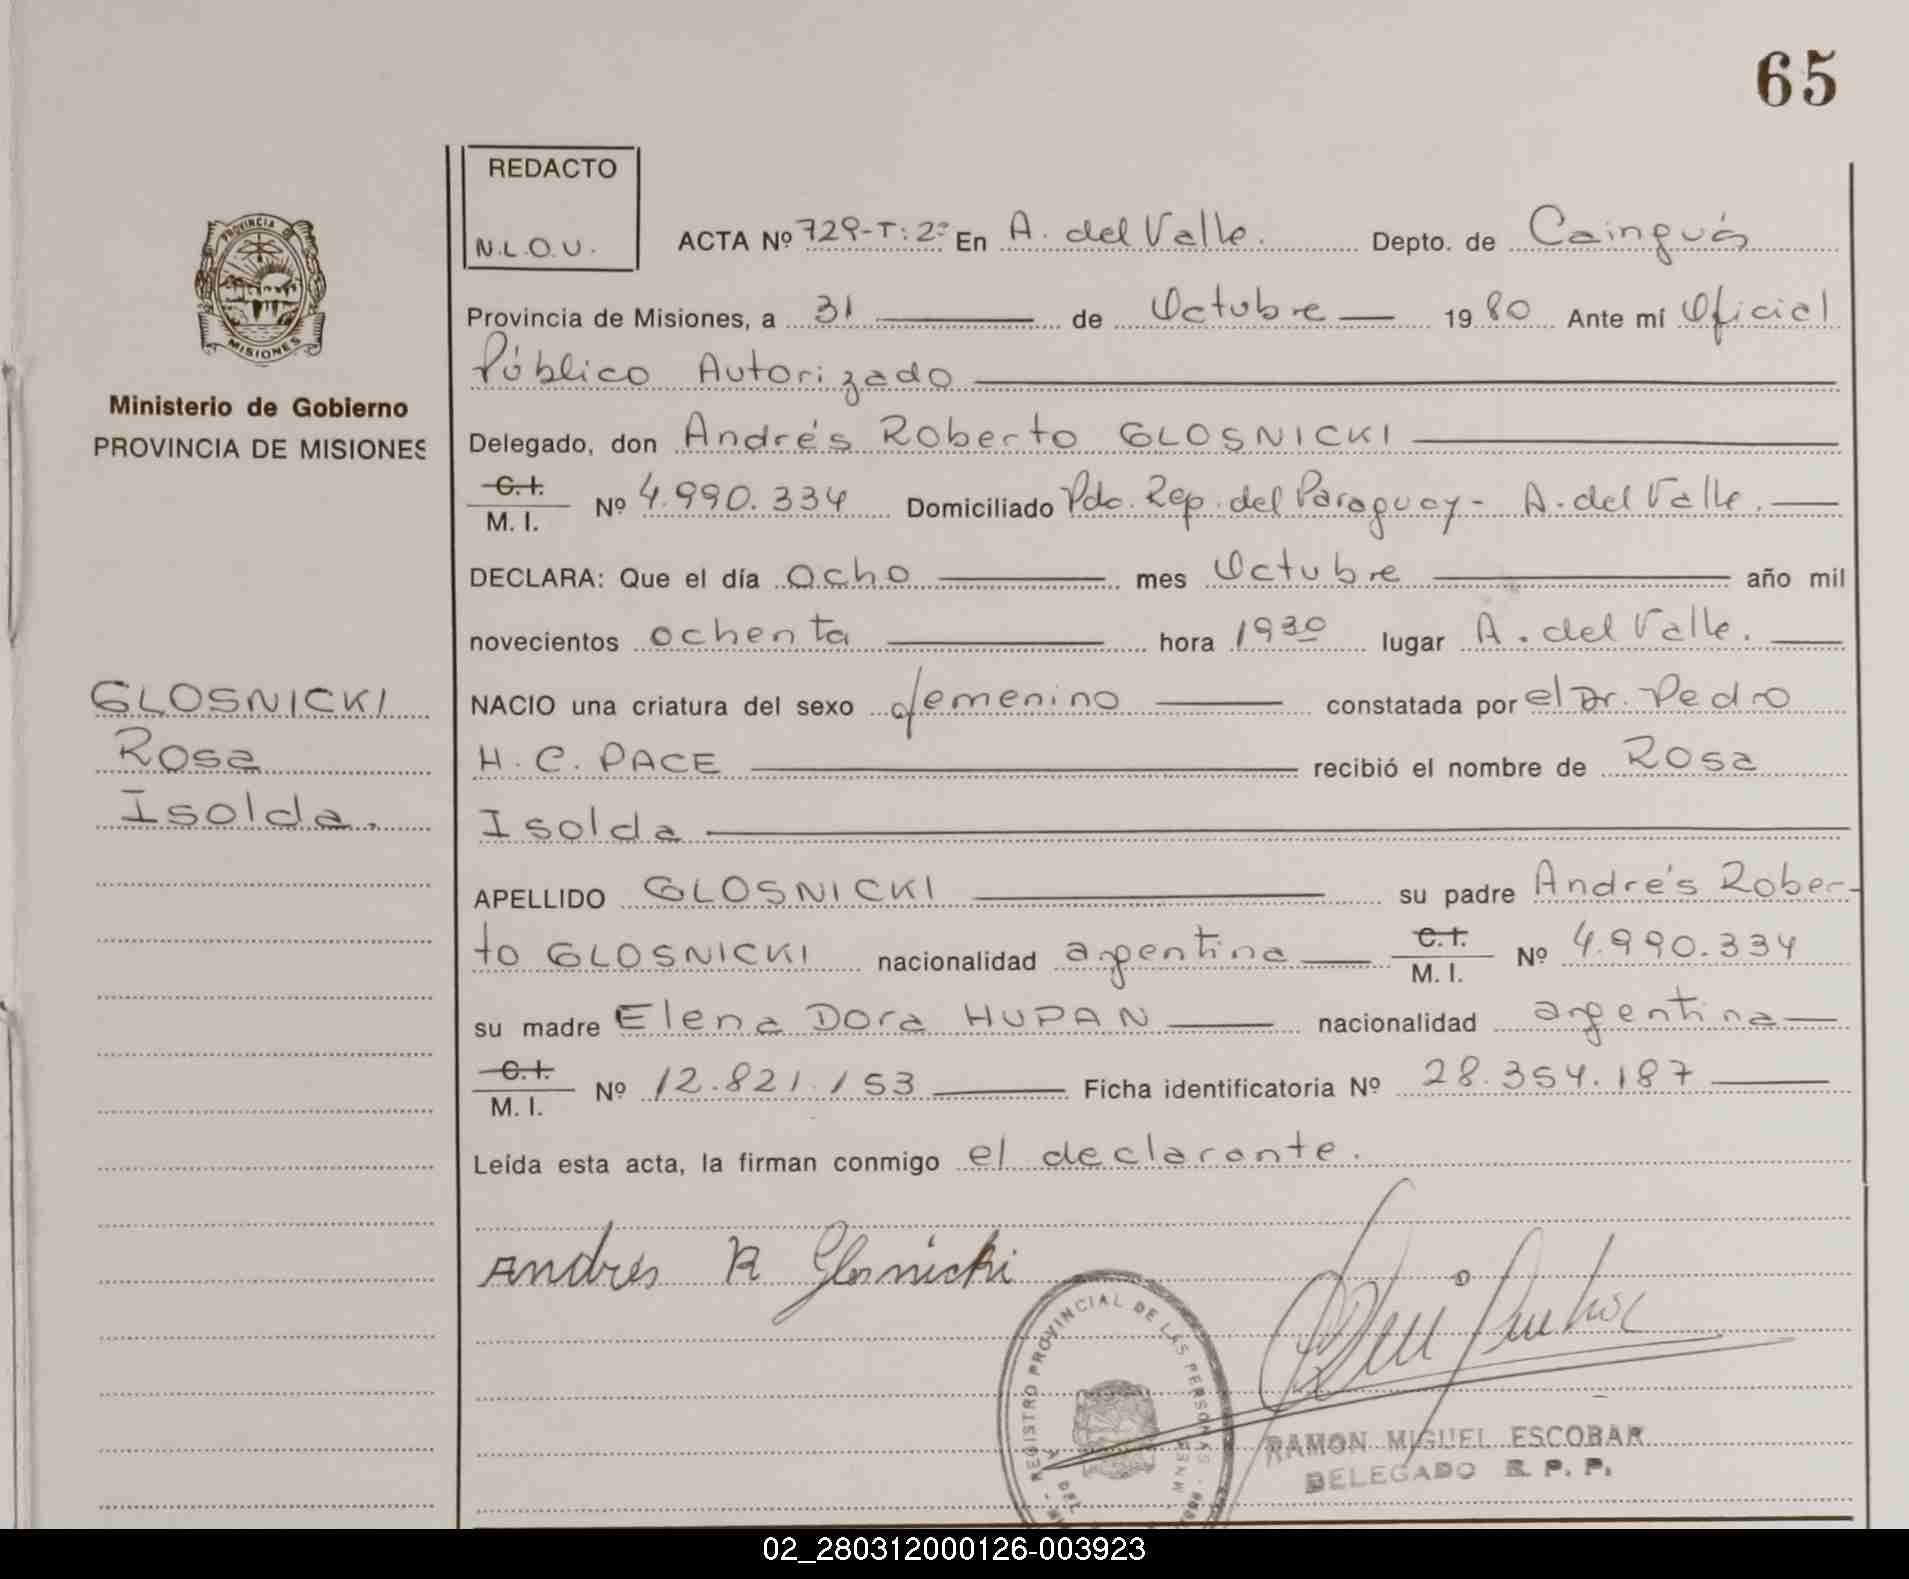 65
REDACTO
N.L.O.U.
ACTA Nº 729-T:2º En A. del Valle. Depto. de Cainguás
Provincia de Misiones, a 31 de Octubre 1980 Ante mí Oficial
Público Autorizado
Delegado, don Andrés Roberto GLOSNICKI
C.I.
M. I. Nº 4.990.334 Domiciliado Pdo. Rep. del Paraguay - A. del Valle.
DECLARA: Que el día ocho mes Octubre año mil
novecientos ochenta hora 1930 lugar A. del Valle.
NACIO una criatura del sexo femenino constatada por el Dr. Pedro
H. C. PACE recibió el nombre de Rosa
Isolda
APELLIDO GLOSNICKI su padre Andrés Rober-
to GLOSNICKI nacionalidad argentina C.I. M. I. Nº 4.990.334
su madre Elena Dora HUPAN nacionalidad argentina
C.I.
M. I. Nº 12.821.153 Ficha identificatoria Nº 28.354.187
Leída esta acta, la firman conmigo el declarante.
Andrés R Glosnicki
REGISTRO PROVINCIAL DE LAS PERSONAS
RAMON MIGUEL ESCOBAR
DELEGADO R. P. P.
PROVINCIA DE
MISIONES
Ministerio de Gobierno
PROVINCIA DE MISIONES
GLOSNICKI
Rosa
Isolda.
02_280312000126-003923